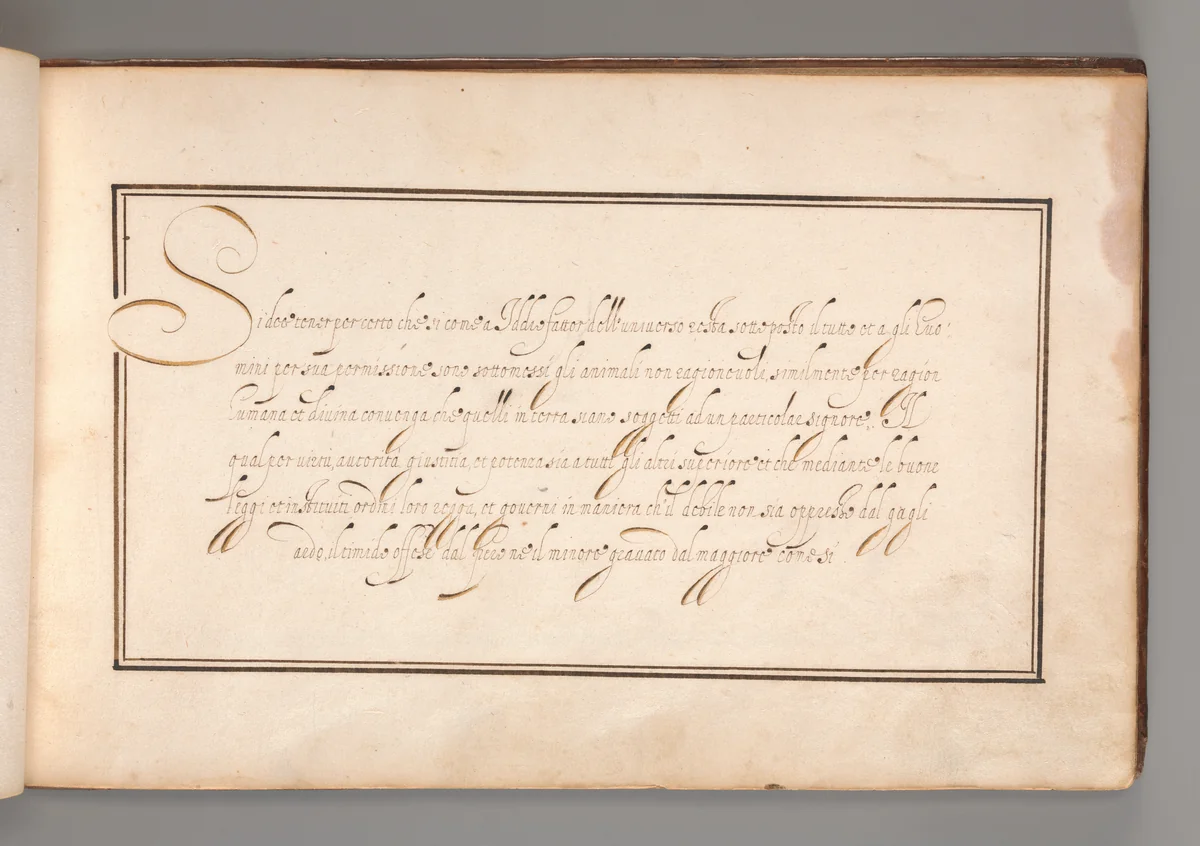 Si dee tener per certo che si come a Iddio fattor dell'universo resta sottoposto il tutto et a gli huo:
mini per sua permissione sono sottomessi gli animali non ragionevoli, similmente per ragion
humana et divina convenga che quelli in terra siano soggetti ad un particolar signore. Il
qual per virtù, autorità, giustitia, et potenza sia a tutti gli altri superiore et che mediante le buone
leggi et instituiti ordini loro regga, et governi in maniera ch'il debile non sia oppresso dal gagli
ardo, il timido offese dal fiero ne il minore gravato dal maggiore come si.